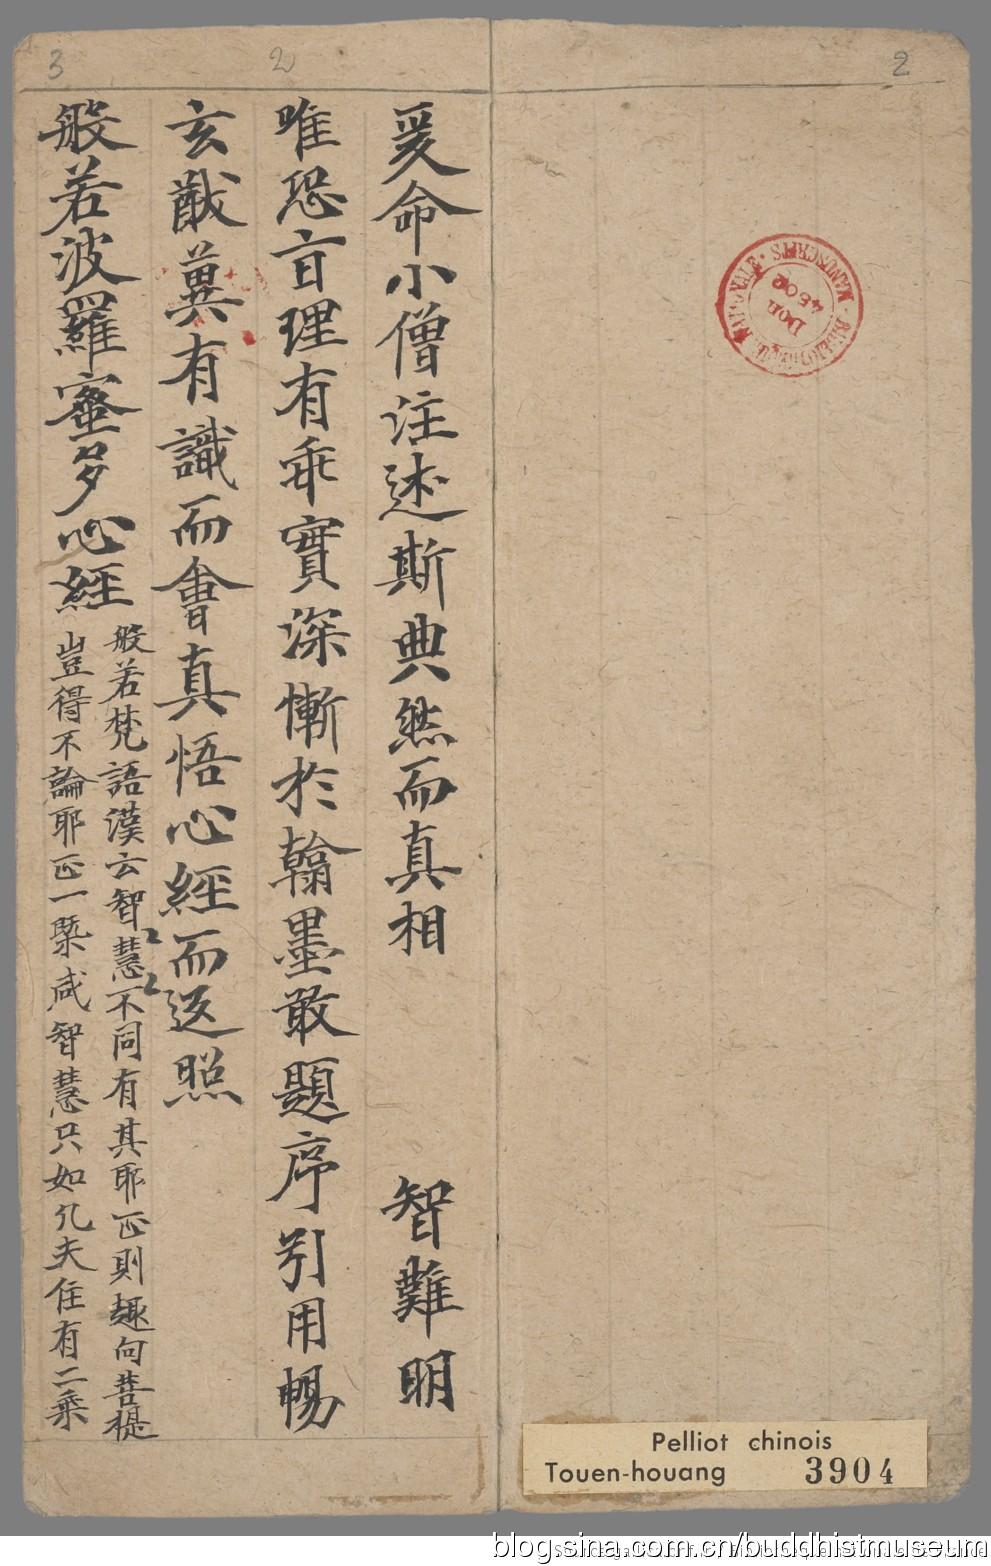 2
2
3
爰命小僧注述斯典然而真相 智難明
唯恐言理有乖實深慚於翰墨敢題序引用暢
玄猷冀有識而會真悟心經而返照
般若波羅蜜多心經
般若梵語漢云智慧不同有其耶正則趣向菩提
豈得不論耶正一槩咸智慧只如凡夫住有二乘
MANUSCRITS
DON
4502
Pelliot chinois
Touen-houang 3904
blog.sina.com.cn/buddhistmuseum